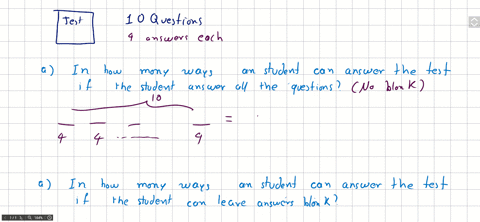 Test
10 Questions
4 answers each
a) In how many ways an student can answer the test
if the student answer all the questions? (No blank)
10
4 4 4 =
a) In how many ways an student can answer the test
if the student can leave answers blank?